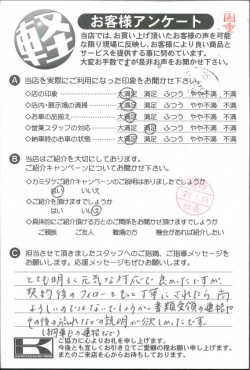 軽
お客様アンケート
当店では、お買い上げ頂いたお客様の声を可能
な限り現場に反映し、お客様により良い商品と
サービスを提供する事に努めています。
大変お手数ですが是非お声をお聞かせ下さい。
A 当店を実際にご利用になった印象をお聞かせ下さい。
◇店の印象 大満足 満足 ふつう やや不満 不満
◇店内・展示場の清掃 大満足 満足 ふつう やや不満 不満
◇お車の品揃え 大満足 満足 ふつう やや不満 不満
◇営業スタッフの対応 大満足 満足 ふつう やや不満 不満
◇納車時のお車の状態 大満足 満足 ふつう やや不満 不満
B 当店はご紹介を大切にしております。
ご紹介キャンペーンについてお聞かせ下さい。
◇カミタケご紹介キャンペーンのご説明はありましたでしょうか
はい いいえ
◇ご紹介を頂けますでしょうか
はい いいえ
◇具体的にご紹介頂ける方とのご関係をお聞かせ頂けますでしょうか
ご親族 ご友人 職場の方 機会があれば紹介したい
C 担当させて頂きましたスタッフへのご指摘、ご指導メッセージを
お願いします。応援メッセージもぜひお願いします。
とても明るく元気な対応で良かったですが、
契約後のフォローをもっと丁寧にされたら、尚
よろしいのではないでしょうか。書類受領の連絡や
その後の流れなどの説明が欲しかったです。
ご協力に心よりお礼を申し上げます。
今後とも宜しくお引き立てご愛顧の程お願い申し上げます。
またのご来店を心からお待ちしております。